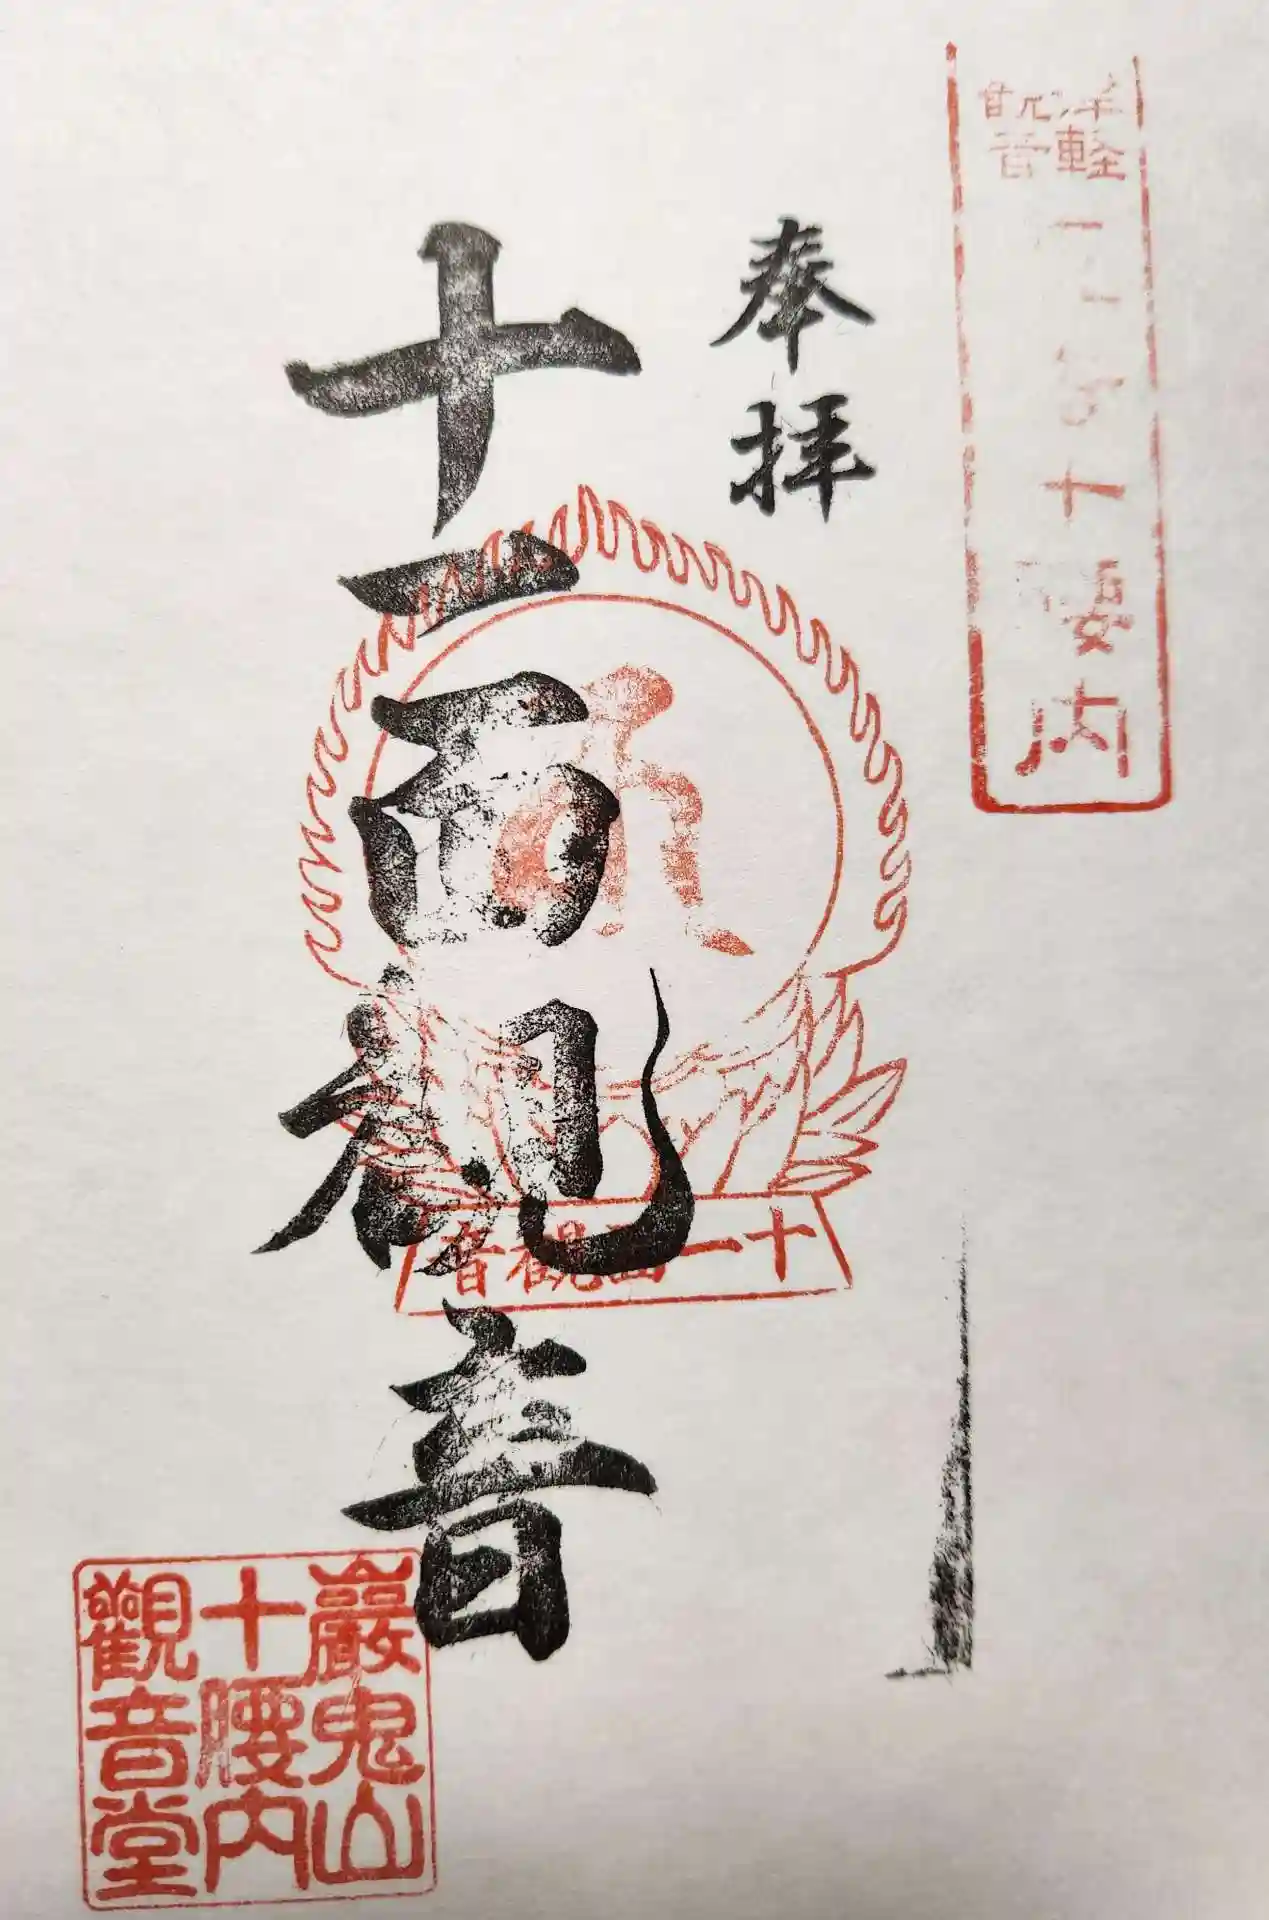 津軽
観音
十腰内
奉拝
十一面観音
十一面觀音
巖鬼山
十腰内
觀音堂